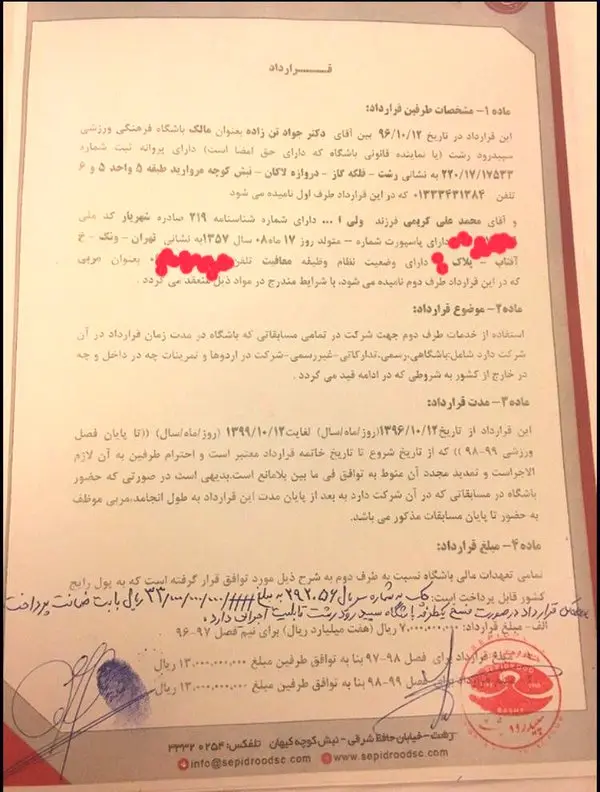 قـــــرارداد
ماده ۱- مشخصات طرفین قرارداد:
این قرارداد در تاریخ ۹۶/۱۰/۱۲ بین آقای دکتر جواد تن زاده بعنوان مالک باشگاه فرهنگی ورزشی
سپیدرود رشت (یا نماینده قانونی باشگاه که دارای حق امضا است) دارای پروانه ثبت شماره
۲۲۰/۱۷/۱۷۵۳۳ به نشانی رشت - فلکه گاز - دروازه لاکان - نبش کوچه مروارید طبقه ۵ واحد ۵ و ۶
تلفن ۰۱۳۳۳۴۳۱۳۸۴ که در این قرارداد طرف اول نامیده می شود
و آقای محمد علی کریمی فرزند ولی ا ... دارای شماره شناسنامه ۲۱۹ صادره شهریار کد ملی
دارای پاسپورت شماره – متولد روز ۱۷ ماه ۰۸ سال ۱۳۵۷ به نشانی تهران - ونک - خ
آفتاب - پلاک دارای وضعیت نظام وظیفه معافیت تلفن بعنوان مربی
که در این قرارداد طرف دوم نامیده می شود، با شرایط مندرج در مواد ذیل منعقد می گردد .
ماده۲- موضوع قرارداد:
استفاده از خدمات طرف دوم جهت شرکت در تمامی مسابقاتی که باشگاه در مدت زمان قرارداد در آن
شرکت دارد شامل:باشگاهی،رسمی،تدارکاتی-غیررسمی-شرکت در اردوها و تمرینات چه در داخل و چه
در خارج از کشور به شروطی که در ادامه قید می گردد .
ماده ۳- مدت قرارداد:
این قرارداد از تاریخ۱۳۹۶/۱۰/۱۲(روز/ماه/سال) لغایت۱۳۹۹/۱۰/۱۲ (روز/ماه/سال) ((تا پایان فصل
ورزشی ۹۹-۹۸ )) که از تاریخ شروع تا تاریخ خاتمه قرارداد معتبر است و احترام طرفین به آن لازم
الاجراست و تمدید مجدد آن منوط به توافق فی ما بین بلامانع است.بدیهی است در صورتی که حضور
باشگاه در مسابقاتی که در آن شرکت دارد به بعد از پایان مدت این قرارداد به طول انجامد،مربی موظف
به حضور تا پایان مسابقات مذکور می باشد.
ماده ۴- مبلغ قرارداد:
تمامی تعهدات مالی باشگاه نسبت به طرف دوم به شرح ذیل مورد توافق قرار گرفته است که به پول رایج
کشور قابل پرداخت است: چک به شماره سریال ۲۹۲۰۵۶ به مبلغ ۳۳/۰۰۰/۰۰۰/۰۰۰ ریال بابت ضمانت پرداخت
قرارداد در صورت فسخ یکطرفه باشگاه سپید رود رشت قابلیت اجرایی دارد.
الف - مبلغ قرارداد: ۷,۰۰۰,۰۰۰,۰۰۰ ریال (هفت میلیارد ریال) برای نیم فصل ۹۷-۹۶
مبلغ قرارداد برای فصل ۹۸-۹۷ بنا به توافق طرفین مبلغ ۱۳,۰۰۰,۰۰۰,۰۰۰ ریال
قرارداد برای فصل ۹۹-۹۸ بنا به توافق طرفین مبلغ ۱۳,۰۰۰,۰۰۰,۰۰۰ ریال
SEPIDROOD
RASHT
رشت - خیابان حافظ شرقی - نبش کوچه کیهان تلفکس: ۰۲۵۴ ۳۳۳۲
info@sepidroodsc.com www.sepidroodsc.com